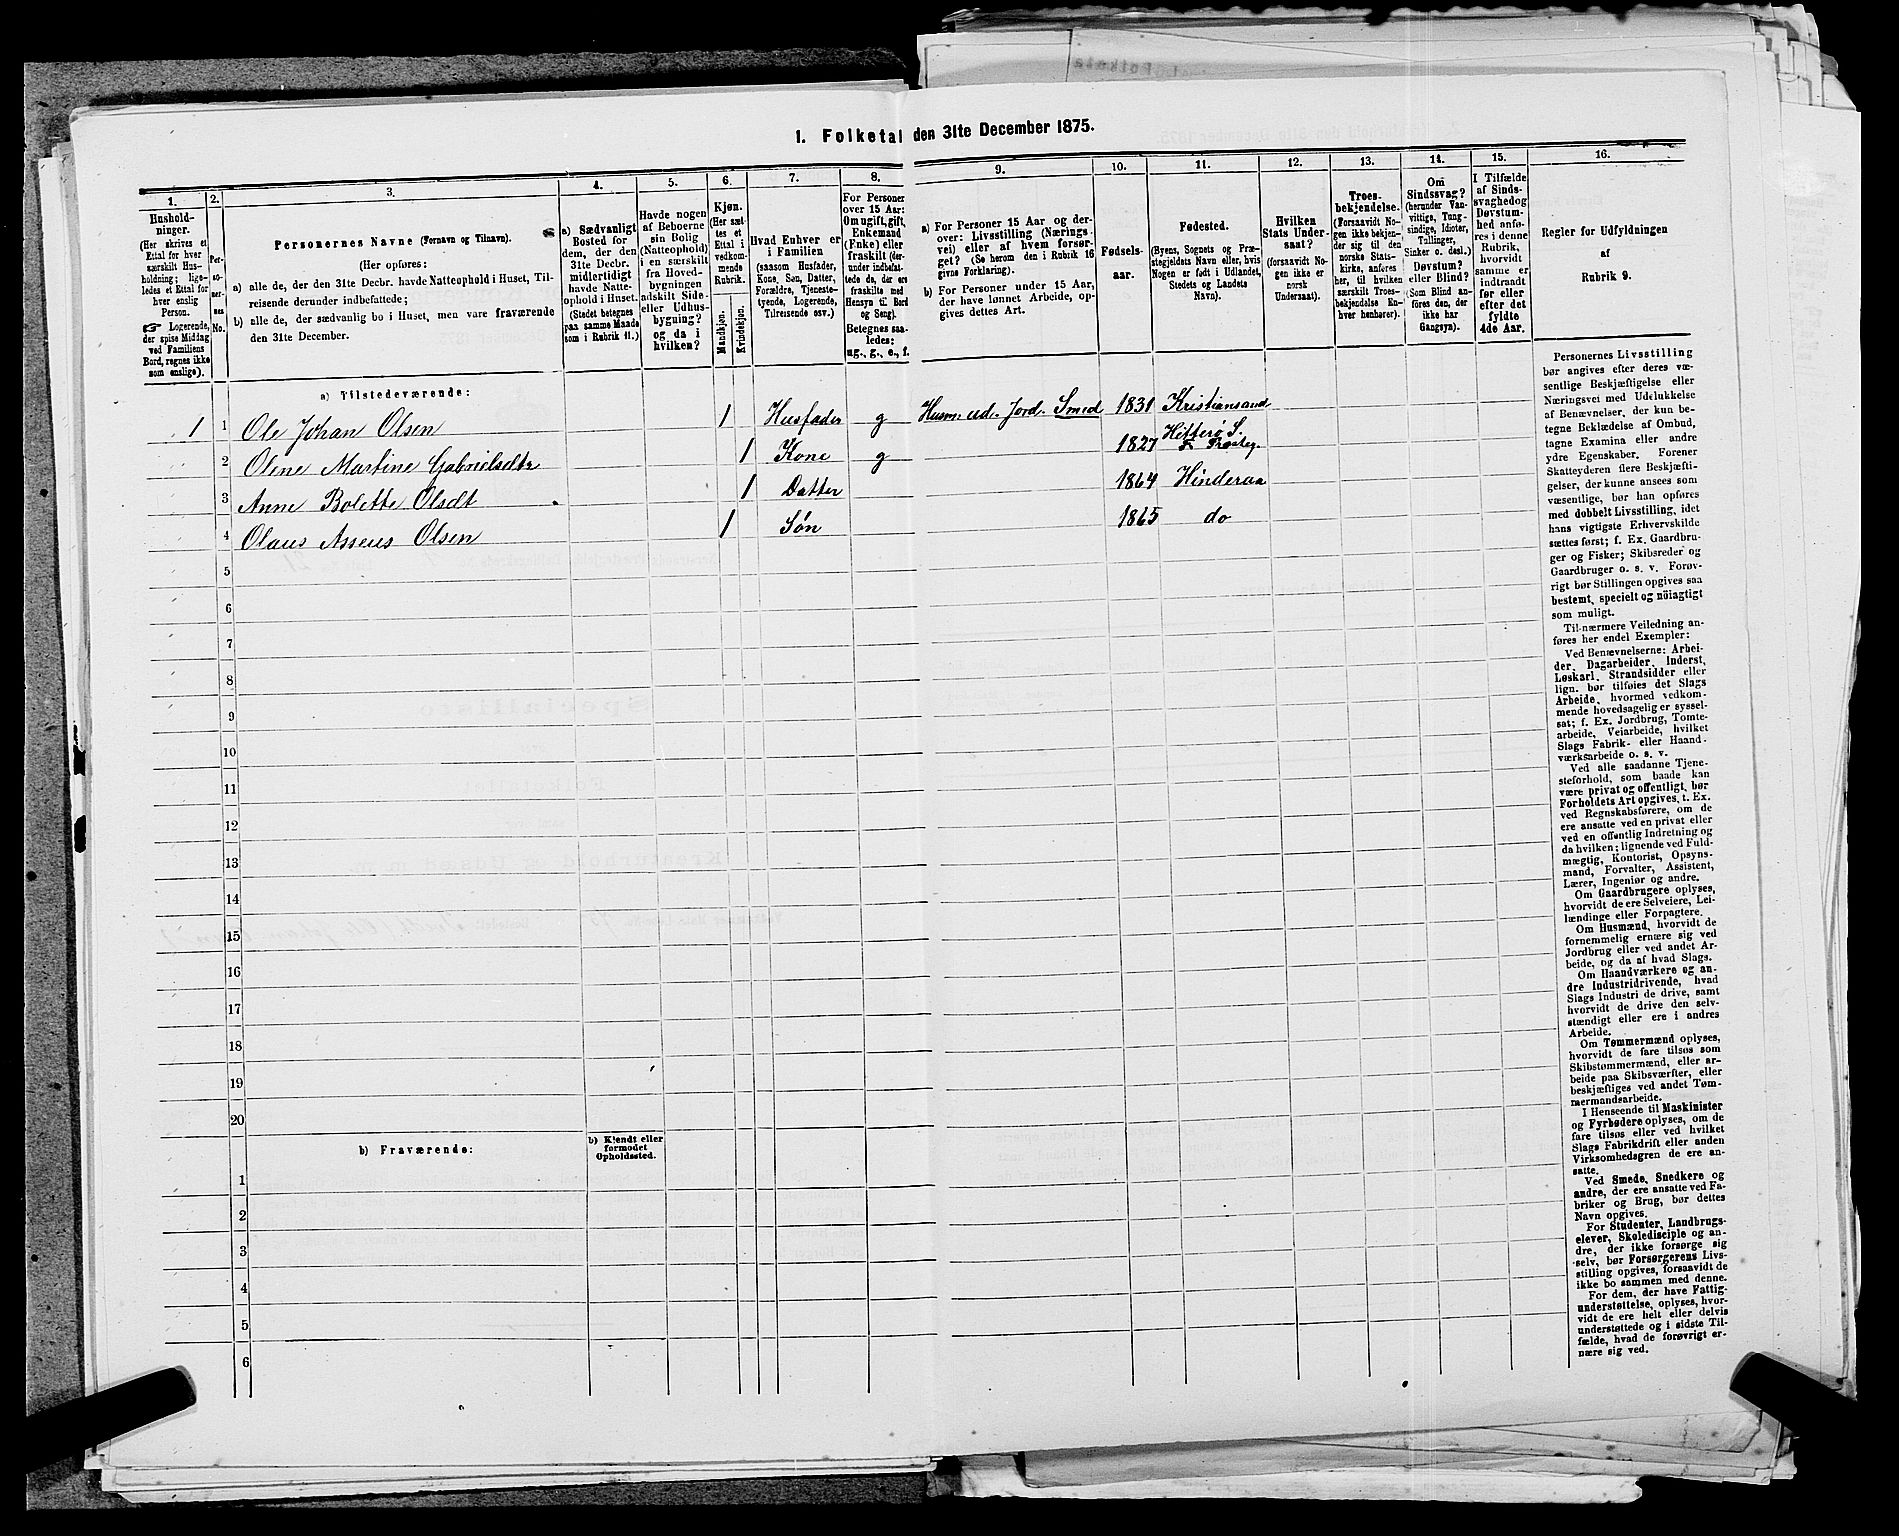 1. Folketal den 31te December 1875.
1.
2.
3.
4.
5.
6.
7.
8.
9.
10.
11.
12.
13.
14.
15.
16.
Hushold-
ninger.
(Her skrives et
Ettal for hver
særskilt Hus-
holdning; lige-
ledes et Ettal for
hver enslig
Person.
☞ Logerende,
der spise Middag
ved Familiens
Bord, regnes ikke
som enslige).
Per-
so-
ner-
nes
No.
Personernes Navne (Fornavn og Tilnavn).
(Her opføres:
a) alle de, der den 31te Decbr. havde Natteophold i Huset, Til-
reisende derunder indbefattede;
b) alle de, der sædvanlig bo i Huset, men vare fraværende
den 31te December.
a) Sædvanligt
Bosted for
dem, der den
31te Decbr.
midlertidigt
havde Natte-
ophold i Huset.
(Stedet betegnes
paa samme Maade
som i Rubrik 11.)
Havde nogen
af Beboerne
sin Bolig
(Natteophold)
i en særskilt
fra Hoved-
bygningen
adskilt Side-
eller Udhus-
bygning?
og da i
hvilken?
Kjøn.
(Her sæt-
tes et
Ettal i
vedkom-
mende
Rubrik.
Mandkjøn.
Kvindekjøn.
Hvad Enhver er
i Familien
(saasom Husfader,
Kone, Søn, Datter,
Forældre, Tjeneste-
tyende, Logerende,
Tilreisende osv.)
For Personer
over 15 Aar:
Om ugift, gift,
Enkemand
(Enke) eller
fraskilt (der-
under indbefat-
tede de, der ere
fraskilte med
Hensyn til Bord
og Seng).
Betegnes saa-
ledes;
ug., g., e., f.
a) For Personer 15 Aar og der-
over: Livsstilling (Nærings-
vei) eller af hvem forsør-
get? (Se herom den i Rubrik 16
givne Forklaring).
b) For Personer under 15 Aar,
der have lønnet Arbeide, op-
gives dettes Art.
Fødsels-
aar.
Fødested.
(Byens, Sognets og Præ-
stegjeldets Navn eller, hvis
Nogen er født i Udlandet,
Stedets og Landets
Navn).
Hvilken
Stats Under-
saat?
(forsaavidt No-
gen ikke er
norsk
Undersaat).
Troes-
bekjendelse.
(Forsaavidt No-
gen ikke bekjen-
der sig til den
norske Stats-
kirke, anføres
her, til hvilken
særskilt Troes-
bekjendelse En-
hver henhører).
Om
Sindssvag?
(herunder Van-
vittige, Tung-
sindige, Idioter,
Tullinger,
Sinker o. desl.)
Døvstum?
eller Blind?
(Som Blind an-
føres den, der
ikke har
Gangsyn).
I Tilfælde
af Sinds-
svaghed og
Døvstum-
hed anfø-
res i denne
Rubrik,
hvorvidt
samme er
indtraadt
før eller
efter det
fyldte
4de Aar.
Regler for Udfyldningen
af
Rubrik 9.
a) Tilstedeværende:
1 1 Ole Johan Olsen 1 Husfader g Husm. ud. Jord. Smed 1831 Kristiansand
2 Olene Martine Gabrielsdtr 1 Kone g 1827 Hitterø S.
3 Anne Bolette Olsdt 1 Datter 1864 Hinderaa
4 Olaus Asseus Olsen 1 Søn 1865 do
5
6
7
8
9
10
11
12
13
14
15
16
17
18
19
20
b) Fraværende:
b) Kjendt eller
formodet
Opholdssted.
1
2
3
4
5
6
Personernes Livsstilling
bør angives efter deres væ-
sentlige Beskjæftigelse eller
Næringsvei med Udelukkelse
af Benævnelser, der kun be-
tegne Beklædelse af Ombud,
tagne Examina eller andre
ydre Egenskaber. Forener
Skatteyderen flere Beskjæfti-
gelser, der kunne ansees som
væsentlige, bør han opføres
med dobbelt Livsstilling, idet
hans vigtigste Erhvervskilde
sættes først; f. Ex. Gaardbru-
ger og Fisker; Skibsreder og
Gaardbruger o. s. v. Forøv-
rigt bør Stillingen opgives saa
bestemt, specielt og nöiagtigt
som muligt.
Til nærmere Veiledning an-
føres her endel Exempler:
Ved Benævnelserne: Arbei-
der, Dagarbeider, Inderst,
Løskarl, Strandsidder eller
lign. bør tilføies det Slags
Arbeide, hvormed vedkom-
mende hovedsagelig er syssel-
sat; f. Ex. Jordbrug, Tomte-
arbeide, Veiarbeide, hvilket
Slags Fabrik- eller Haand-
værksarbeide o. s. v.
Ved alle saadanne Tjene-
steforhold, som baade kan
være privat og offentligt, bør
Forholdets Art opgives, t. Ex.
ved Regnskabsførere, om de
ere ansatte ved en privat eller
ved en offentlig Indretning og
da hvilken; lignende ved Fuld-
mægtig, Kontorist, Opsyns-
mand, Forvalter, Assistent,
Lærer, Ingeniør og andre.
Om Gaardbrugere oplyses,
hvorvidt de ere Selveiere, Lei-
lændinge eller Forpagtere.
Om Husmænd, hvorvidt de
fornemmelig ernære sig ved
Jordbrug eller ved andet Ar-
beide, og da af hvad Slags.
Om Haandværkere og an-
dre Industridrivende, hvad
Slags Industri de drive, samt
hvorvidt de drive den selv-
stændigt eller ere i andres
Arbeide.
Om Tømmermænd oplyses,
hvorvidt de fare tilsøs som
Skibstømmermænd, eller ar-
beide paa Skibsværfter, eller
beskjæftiges ved andet Tøm-
mermandsarbeide.
I Henseende til Maskinister
og Fyrbødere oplyses, om de
fare tilsøs eller ved hvilket
Slags Fabrikdrift eller anden
Virksomhedsgren de ere an-
satte.
Ved Smede, Snedkere og
andre, der ere ansatte ved Fa-
briker og Brug, bør dettes
Navn opgives.
For Studenter, Landbrugs-
elever, Skoledisciple og an-
dre, der ikke forsørge sig
selv, bør Forsørgerens Livs-
stilling opgives, forsaavidt de
ikke bo sammen med denne.
For dem, der have Fattig-
understøttelse, oplyses, hvor-
vidt de ere helt eller delvis
understøttede og i sidste Til-
fælde, hvad de forøvrigt er-
nære sig ved.